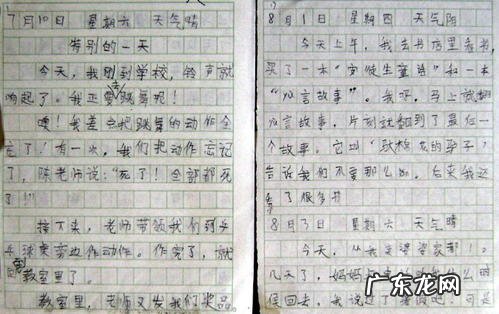 7月10日 星期六 天气晴
特别的一天
今天，我刚到学校，铃声就
响起了。我正要去跳舞呢！
噢！我差点把跳舞的动作全
忘了！有一次，我们把动作忘记
了，陈老师说：“死了！全部都死
了！”
接下来，老师带领我们到乒
乓球桌旁边作动作。作完了，就
回教室里了。
教室里，老师又发我们奖品
8月1日 星期四 天气阴
今天上午，我去书店里看书
买了一本“ 童诗”和一本
“ 言故事”。我呀，马上就翻
言故事，片刻就翻到了最后一
个故事。它叫“ 花的 子”
告诉我们不要那么 ，后来我这
看了很多书
8月3日 星期六 天气晴
今天，从我去婆婆家都！。
几天了，妈妈 么的
回去，我说过了暑假吧，可是
广东龙网